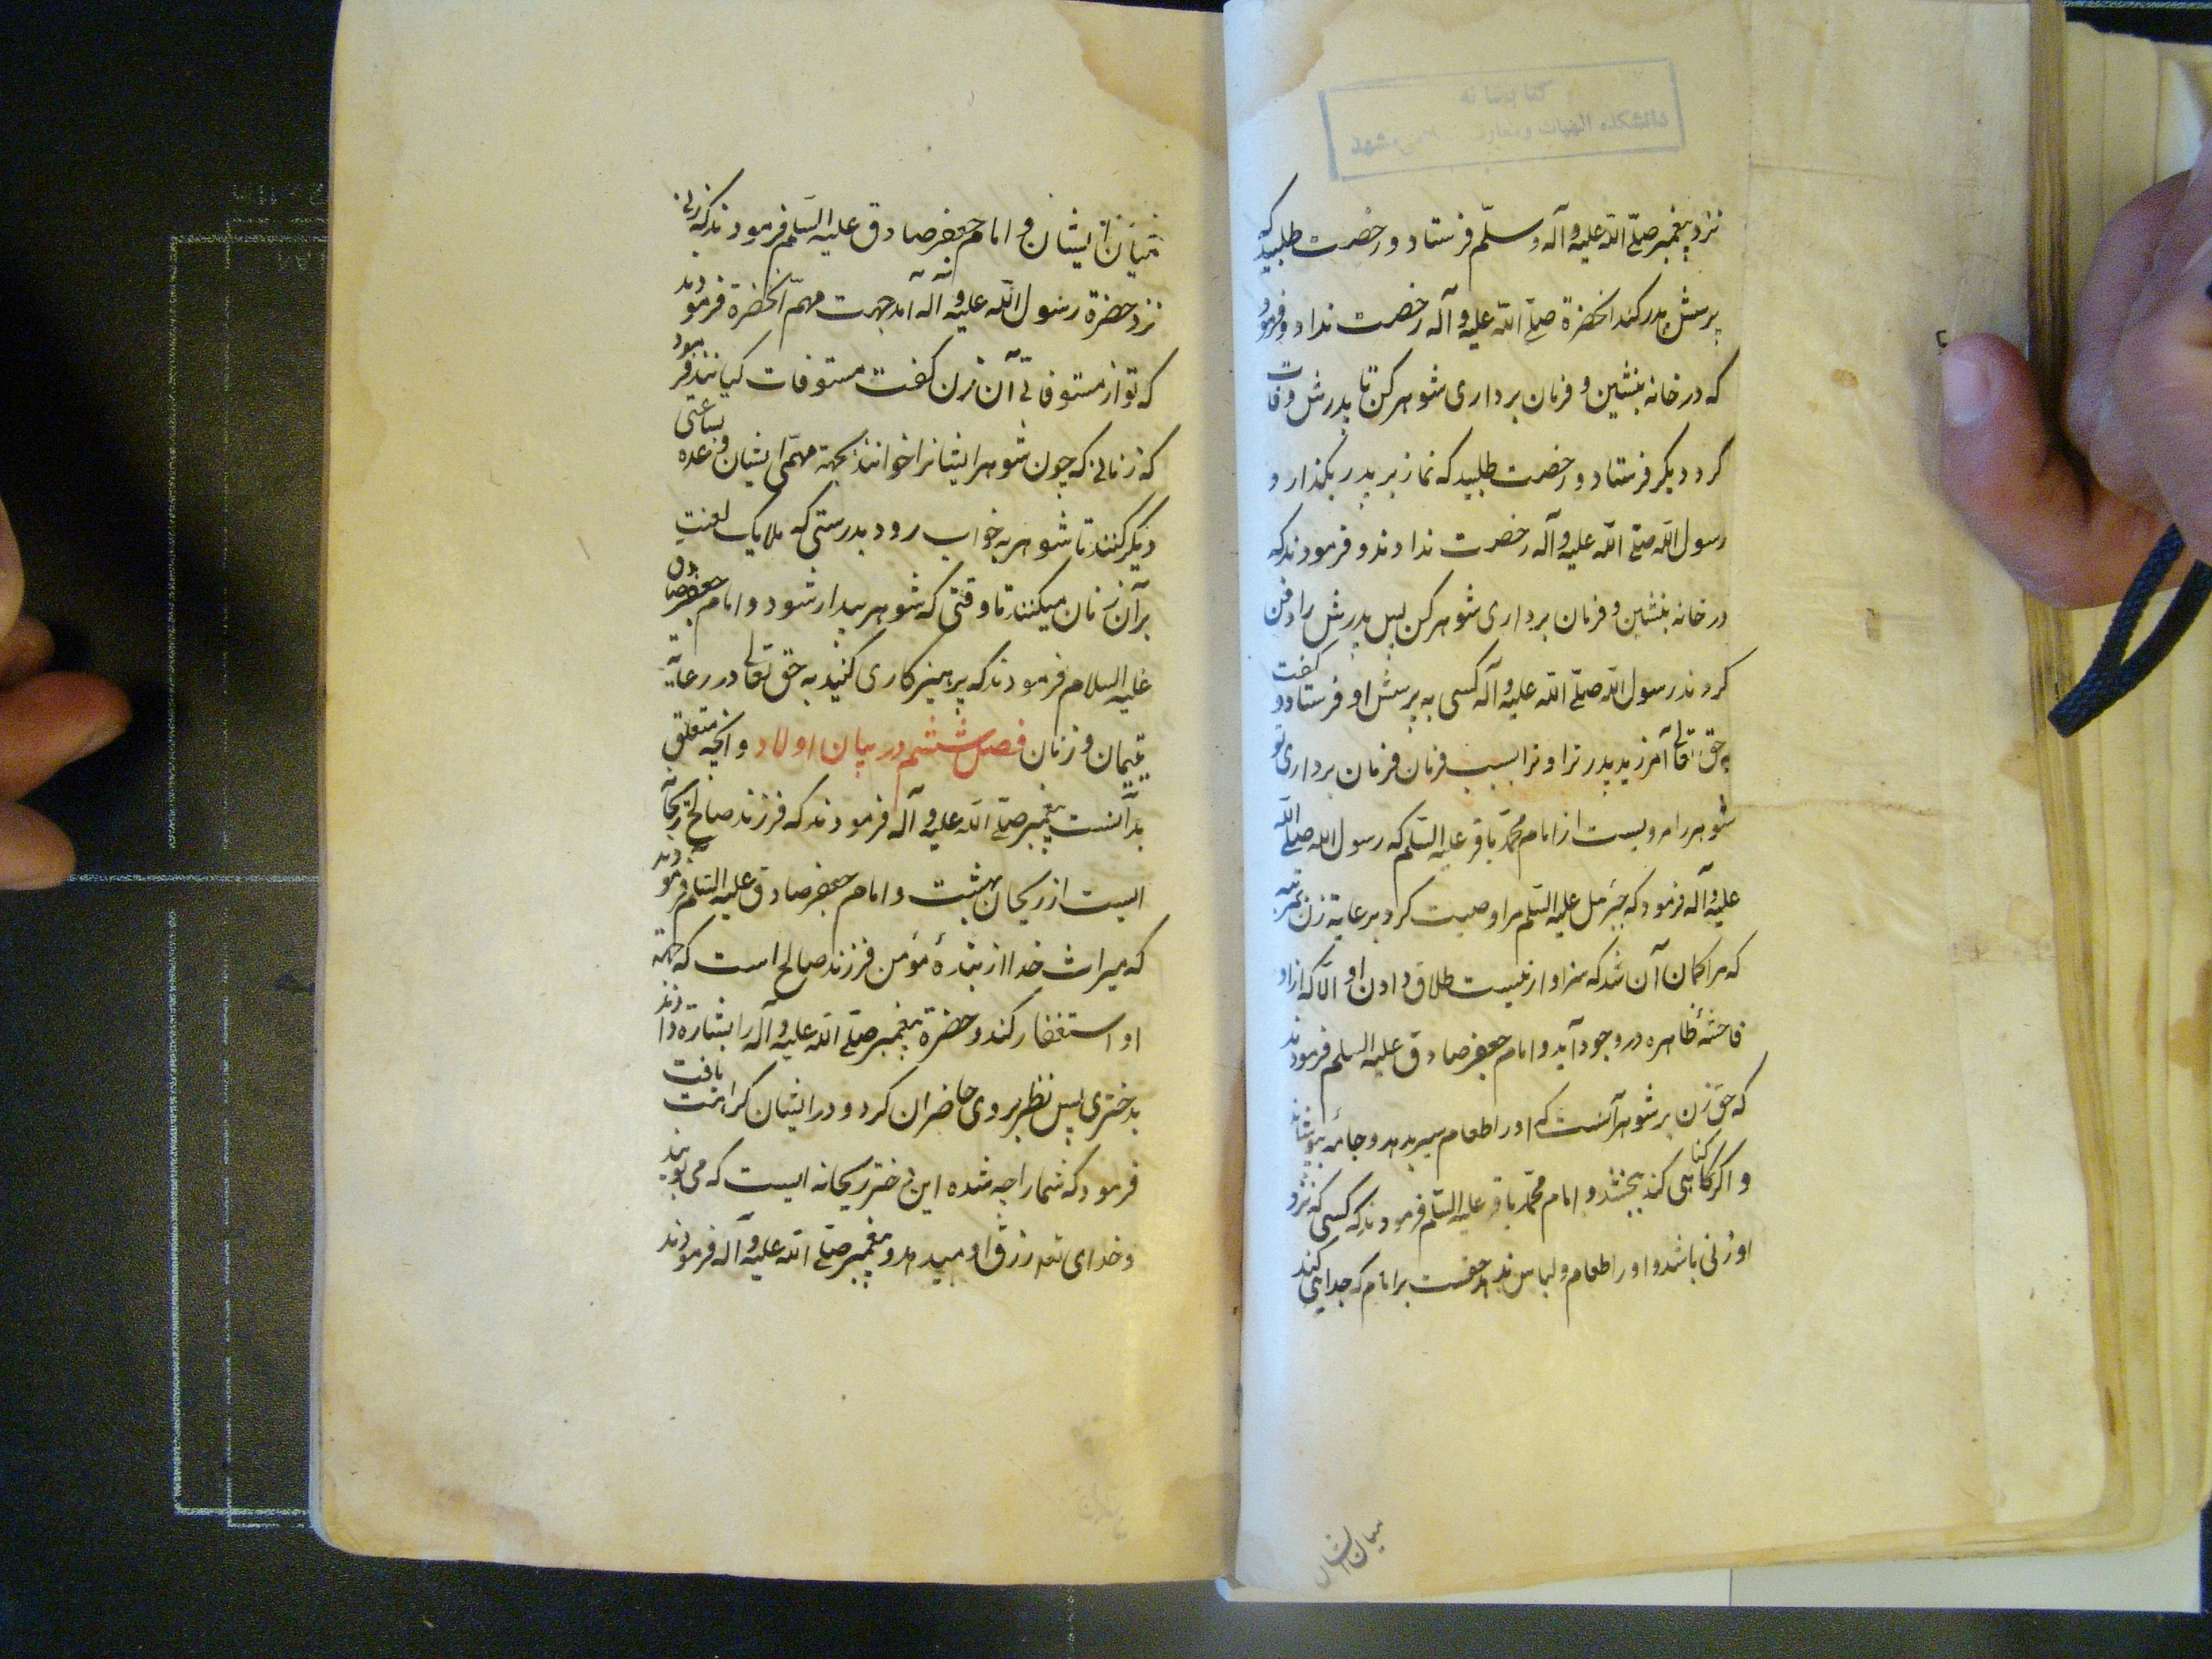 کتابخانه
دانشکده الهیات و معارف
نزد پیغمبر صلّی اللّه علیه و آله و سلّم فرستاد و رخصت طلبید که
پرسش پدر کند آنحضرة صلّی اللّه علیه و آله رخصت نداد و فرمود
که در خانه بنشین و فرمان برداری شوهر کن تا پدرش وفات
کرد دیگر فرستاد و رخصت طلبید که نماز بر پدر بگذارد
رسول اللّه صلّی اللّه علیه و آله رخصت ندادند و فرمودند که
در خانه بنشین و فرمان برداری شوهر کن پس پدرش را دفن
کردند رسول اللّه صلّی اللّه علیه و آله کسی به پرسش او فرستاد و گفت
حق تعالی آمرزید پدر ترا و ترا بسبب فرمان فرمان برداری تو
شوهر را مرویست از امام محمّد باقر علیه السّلم که رسول اللّه صلّی اللّه
علیه و آله فرمود که جبرئیل علیه السّلم مرا وصیت کرد برعایة زن بمرتبه
که مرا گمان آن شد که سزاوار نیست طلاق دادن او الّا که از او
فاحشهٔ ظاهره در وجود آید و امام جعفر صادق علیه السلم فرمودند
که حق زن بر شوهر آنست که او را طعام سیر بدهد و جامه بپوشاند
و اگر گناهی کند ببخشد و امام محمّد باقر علیه السّلم فرمودند که کسی که نزد
او زنی باشد و او را طعام و لباس ندهد حقست بر امام که جدایی کند
میان ایشان
میان ایشان و امام جعفر صادق علیه السّلم فرمودند که زنی
نزد حضرة رسول اللّه علیه و آله آمد جهت مهمّی آنحضرة فرمودند
که تو از مستوفاتی آن زن گفت مستوفات کیانند فرمود
که زنانی که چون شوهر ایشانرا خوانند بجهة مهمّی ایشان وعده بساعتی
دیگر کنند تا شوهر به خواب رود بدرستی که ملایک لعنت
بر آن زنان میکنند تا وقتی که شوهر بیدار شود و امام جعفر صادق
علیه السلام فرمودند که پرهیزکاری کنید به حق تعالی در رعایة
یتیمان و زنان فصل ششم در بیان اولاد و آنچه متعلق
بدانست پیغمبر صلّی اللّه علیه و آله فرمودند که فرزند صالح ریحانه
ایست از ریحان بهشت و امام جعفر صادق علیه السّلم فرمودند
که میراث خدا از بندهٔ مؤمن فرزند صالح است که جهة
او استغفار کند و حضرة پیغمبر صلّی اللّه علیه و آله را بشارة دادند
بدختری پس نظر بروی حاضران کرد و در ایشان کراهت یافت
فرمود که شما را چه شده این دختر ریحانه ایست که می بویند
و خدای تعه رزق او میدهد و پیغمبر صلّی اللّه علیه و آله فرمودند